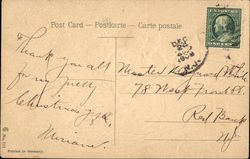 Post Card - Postkarte - Carte postale
DEC
Thank you all
for my pretty
Christmas
Miriam.
Master
78 West Front St.
Red Bank
N.J.
Printed in Germany.